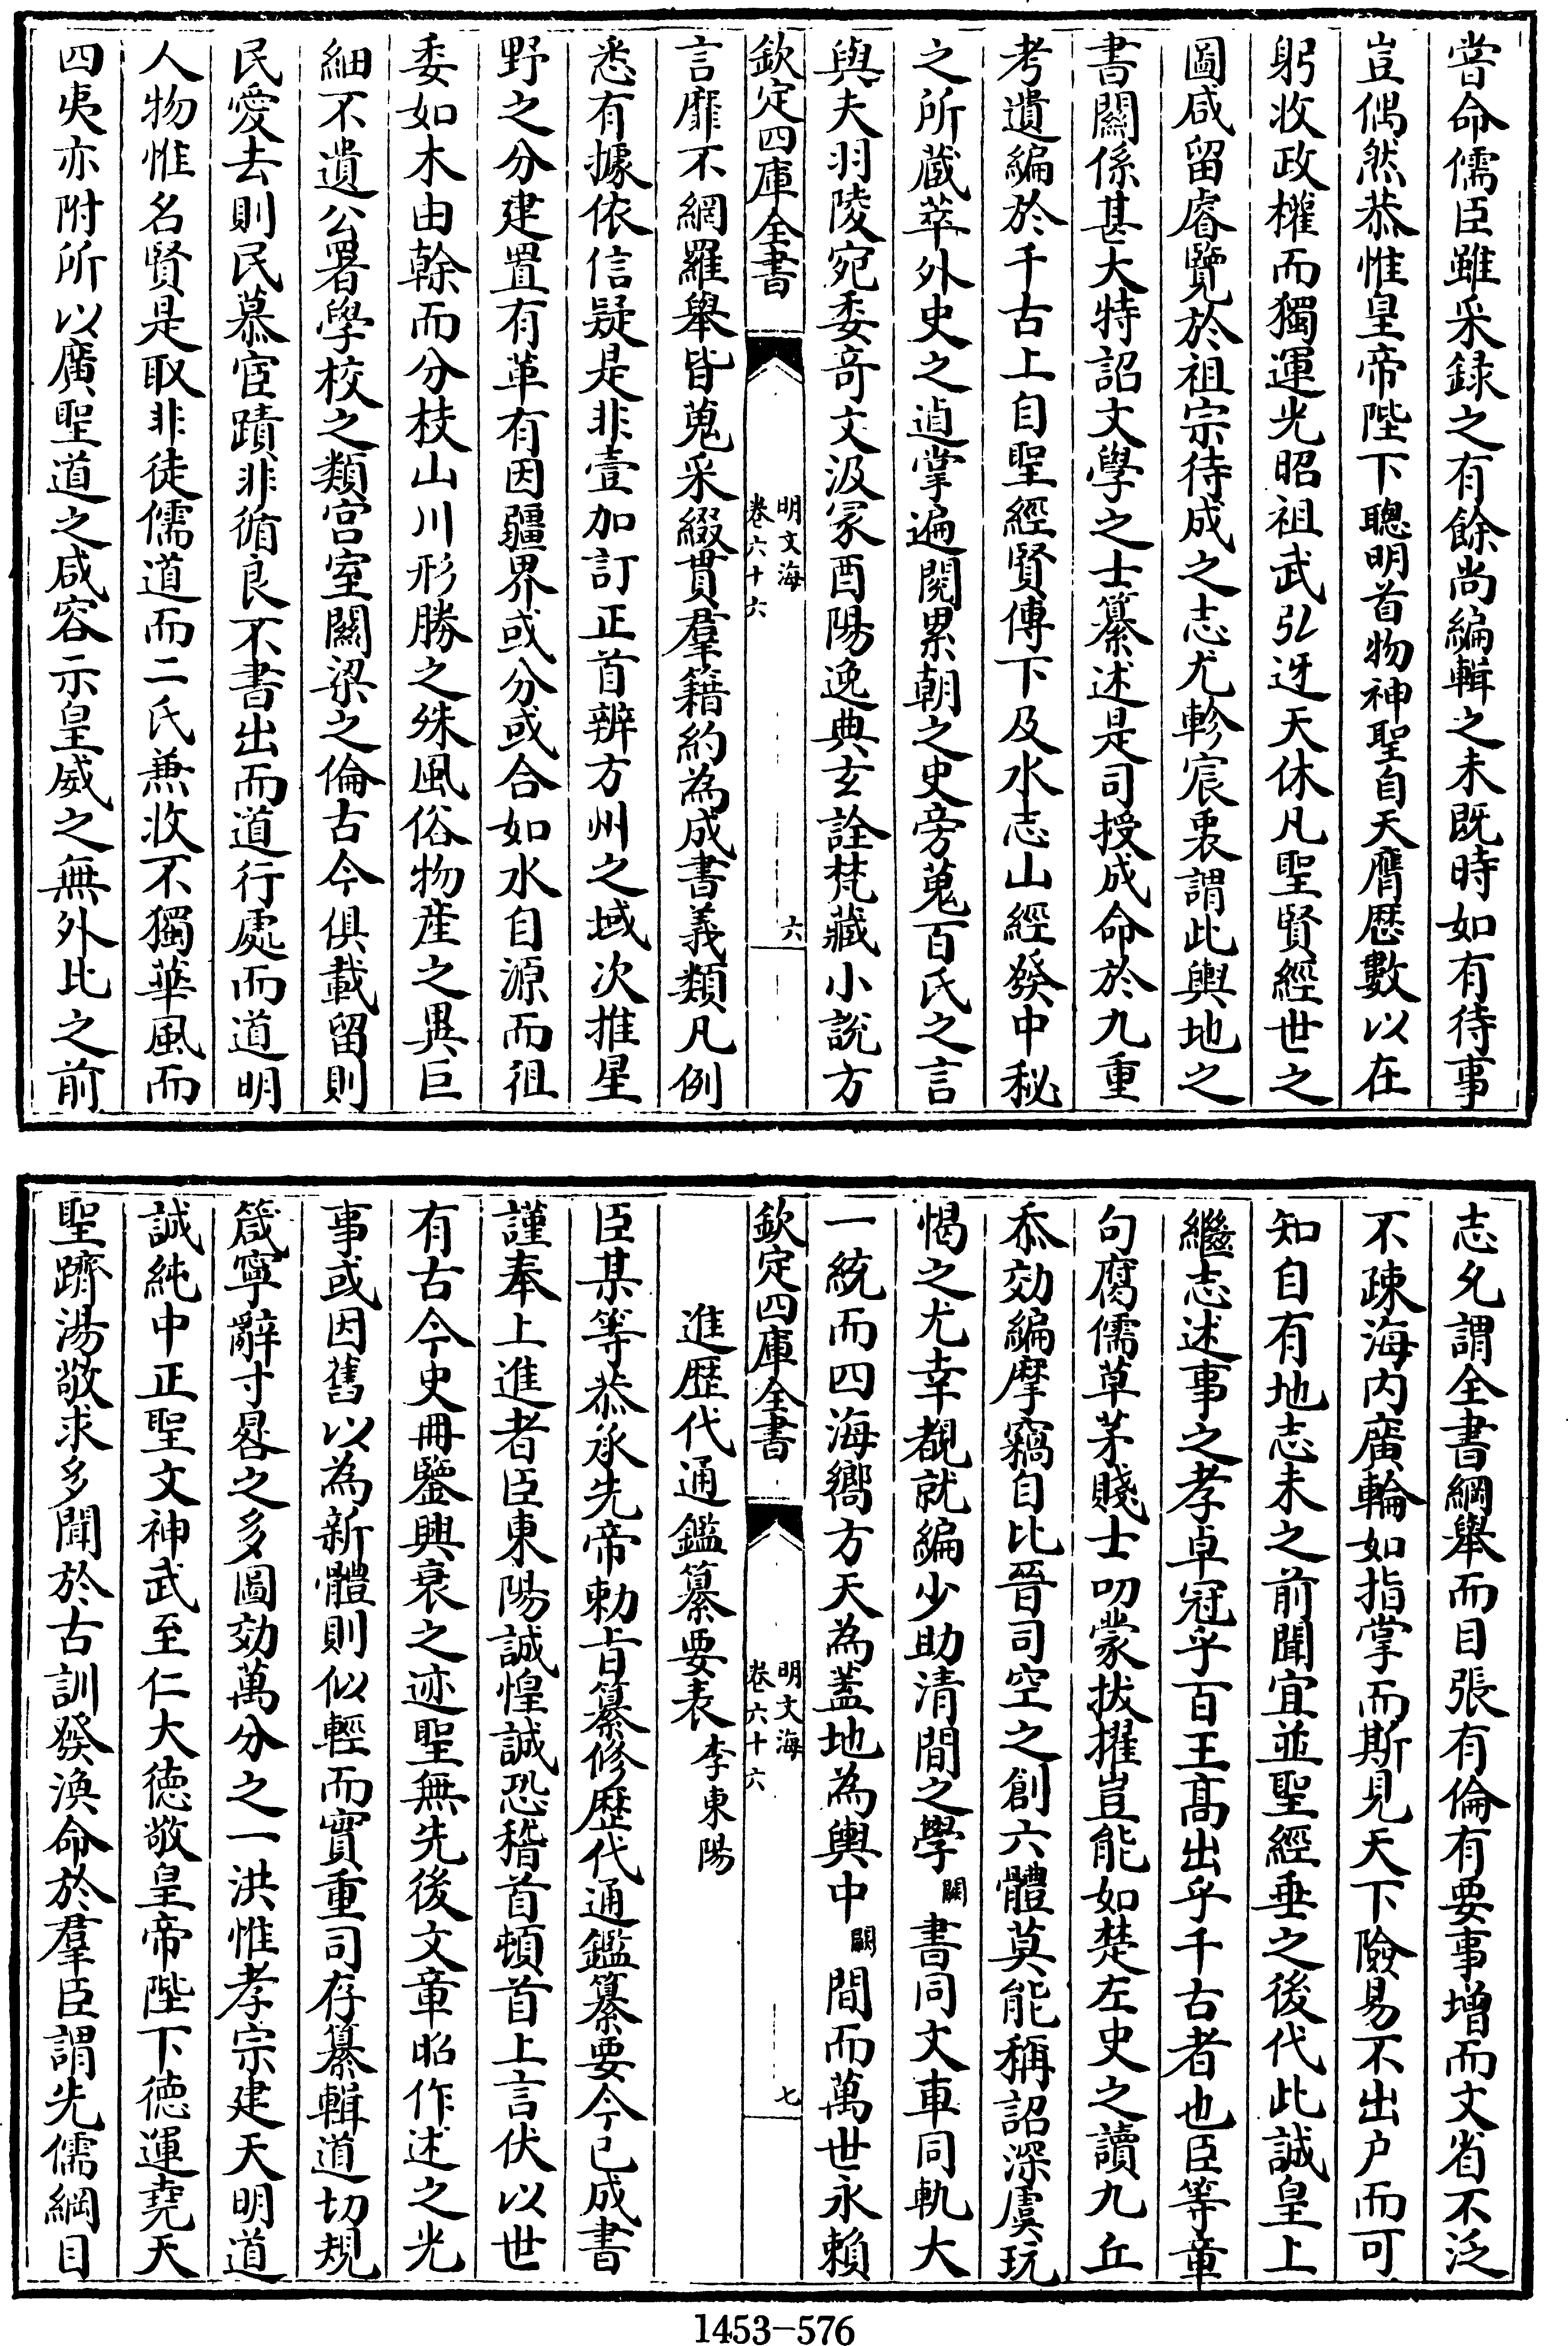 嘗命儒臣雖采録之有餘尚編輯之未既時如有待事
豈偶然恭惟皇帝陛下聰明首物神聖自天膺厯數以在
躬收政權而獨運光昭祖武弘迓天休凡聖賢經世之
圖咸留睿覽於祖宗待成之志尤軫宸衷謂此輿地之
書關係甚大特詔文學之士纂述是司授成命於九重
考遺編於千古上自聖經賢傳下及水志山經發中秘
之所蔵萃外史之逌掌遍閱累朝之史旁蒐百氏之言
與夫羽陵宛委竒文汲冢酉陽逸典玄詮梵藏小說方
欽定四庫全書
明文海
卷六十六
六
言靡不網羅舉皆蒐采綴貫羣籍約為成書義類凡例
悉有據依信疑是非壹加訂正首辨方州之域次推星
野之分建置有革有因疆界或分或合如水自源而徂
委如木由榦而分枝山川形勝之殊風俗物産之異巨
細不遺公署學校之類宫室關梁之倫古今俱載留則
民愛去則民慕宦蹟非循良不書出而道行處而道明
人物惟名賢是取非徒儒道而二氏兼收不獨華風而
四夷亦附所以廣聖道之咸容示皇威之無外比之前
志允謂全書綱舉而目張有倫有要事増而文省不泛
不疎海内廣輪如指掌而斯見天下險易不出户而可
知自有地志未之前聞宜並聖經垂之後代此誠皇上
繼志述事之孝卓冠乎百王髙出乎千古者也臣等章
句腐儒草茅賤士叨蒙拔擢豈能如楚左史之讀九丘
忝効編摩竊自比晉司空之創六體莫能稱詔深虞玩
愒之尤幸覩就編少助清間之學闕書同文車同軌大
一統而四海嚮方天為蓋地為輿中闕間而萬世永賴
欽定四庫全書
明文海
卷六十六
七
進歴代通鑑纂要表李東陽
臣某等恭承先帝勅㫖纂修歴代通鑑纂要今已成書
謹奉上進者臣東陽誠惶誠恐稽首頓首上言伏以世
有古今史冊鑒興衰之迹聖無先後文章昭作述之光
事或因舊以為新體則似輕而實重司存纂輯道切規
箴寧辭寸晷之多圖効萬分之一洪惟孝宗建天明道
誠純中正聖文神武至仁大德敬皇帝陛下德運堯天
聖躋湯敬求多聞於古訓發渙命於羣臣謂先儒綱目
1453-576